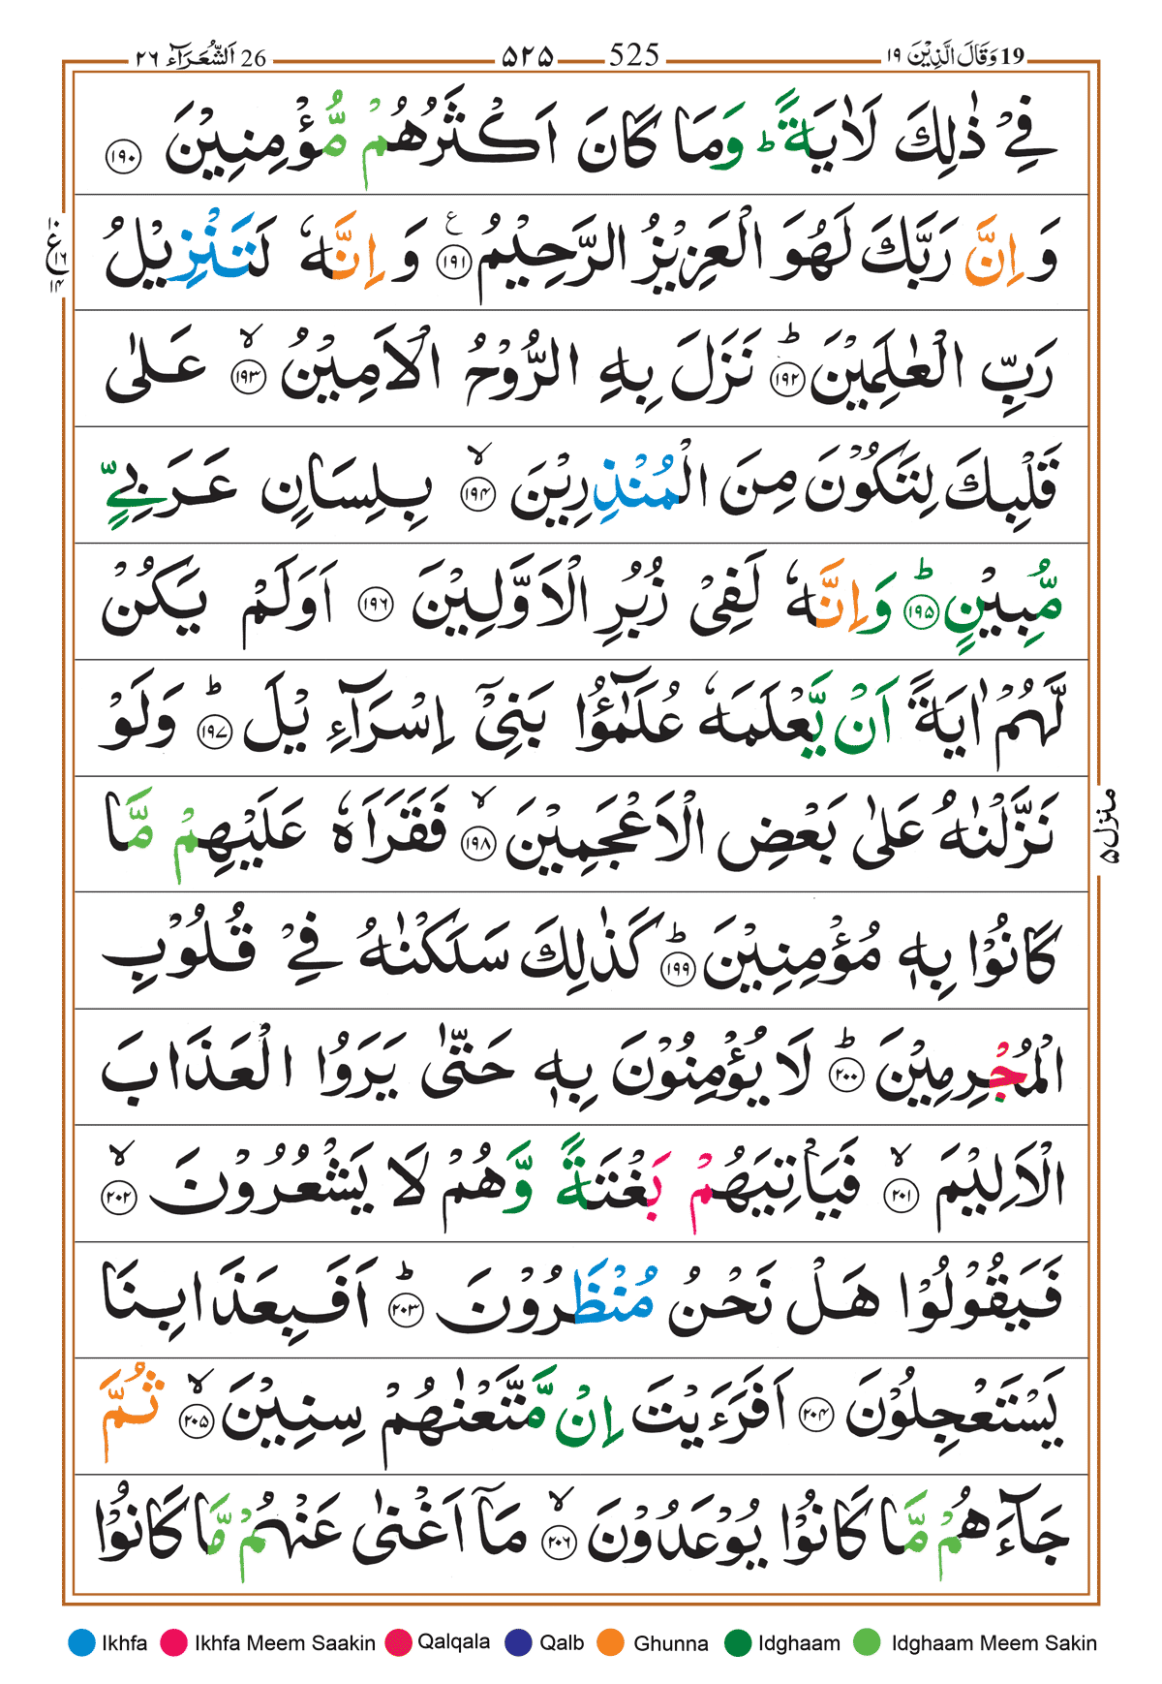 19 وَقَالَ الَّذِيْنَ ١٩ 525 ۵۲۵ 26 اَلشُّعَرَآء ٢٦
فِيْ ذٰلِكَ لَاٰيَةً ؕ وَمَا كَانَ اَكْثَرُهُمْ مُّؤْمِنِيْنَ ۝١٩٠
وَاِنَّ رَبَّكَ لَهُوَ الْعَزِيْزُ الرَّحِيْمُ ۝١٩١ ع وَاِنَّهٗ لَتَنْزِيْلُ
رَبِّ الْعٰلَمِيْنَ ؕ ۝١٩٢ نَزَلَ بِهِ الرُّوْحُ الْاَمِيْنُ ۙ ۝١٩٣ عَلٰى
قَلْبِكَ لِتَكُوْنَ مِنَ الْمُنْذِرِيْنَ ۙ ۝١٩٤ بِلِسَانٍ عَرَبِيٍّ
مُّبِيْنٍ ؕ ۝١٩٥ وَاِنَّهٗ لَفِيْ زُبُرِ الْاَوَّلِيْنَ ۝١٩٦ اَوَلَمْ يَكُنْ
لَّهُمْ اٰيَةً اَنْ يَّعْلَمَهٗ عُلَمٰٓؤُا بَنِيْۤ اِسْرَآءِيْلَ ؕ ۝١٩٧ وَلَوْ
نَزَّلْنٰهُ عَلٰى بَعْضِ الْاَعْجَمِيْنَ ۙ ۝١٩٨ فَقَرَاَهٗ عَلَيْهِمْ مَّا
كَانُوْا بِهٖ مُؤْمِنِيْنَ ؕ ۝١٩٩ كَذٰلِكَ سَلَكْنٰهُ فِيْ قُلُوْبِ
الْمُجْرِمِيْنَ ؕ ۝٢٠٠ لَا يُؤْمِنُوْنَ بِهٖ حَتّٰى يَرَوُا الْعَذَابَ
الْاَلِيْمَ ۙ ۝٢٠١ فَيَاْتِيَهُمْ بَغْتَةً وَّهُمْ لَا يَشْعُرُوْنَ ۙ ۝٢٠٢
فَيَقُوْلُوْا هَلْ نَحْنُ مُنْظَرُوْنَ ؕ ۝٢٠٣ اَفَبِعَذَابِنَا
يَسْتَعْجِلُوْنَ ۝٢٠٤ اَفَرَءَيْتَ اِنْ مَّتَّعْنٰهُمْ سِنِيْنَ ۙ ۝٢٠٥ ثُمَّ
جَآءَهُمْ مَّا كَانُوْا يُوْعَدُوْنَ ۙ ۝٢٠٦ مَاۤ اَغْنٰى عَنْهُمْ مَّا كَانُوْا
١٠ ع ١٦ ١٤
منزل ۵
Ikhfa Ikhfa Meem Saakin Qalqala Qalb Ghunna Idghaam Idghaam Meem Sakin